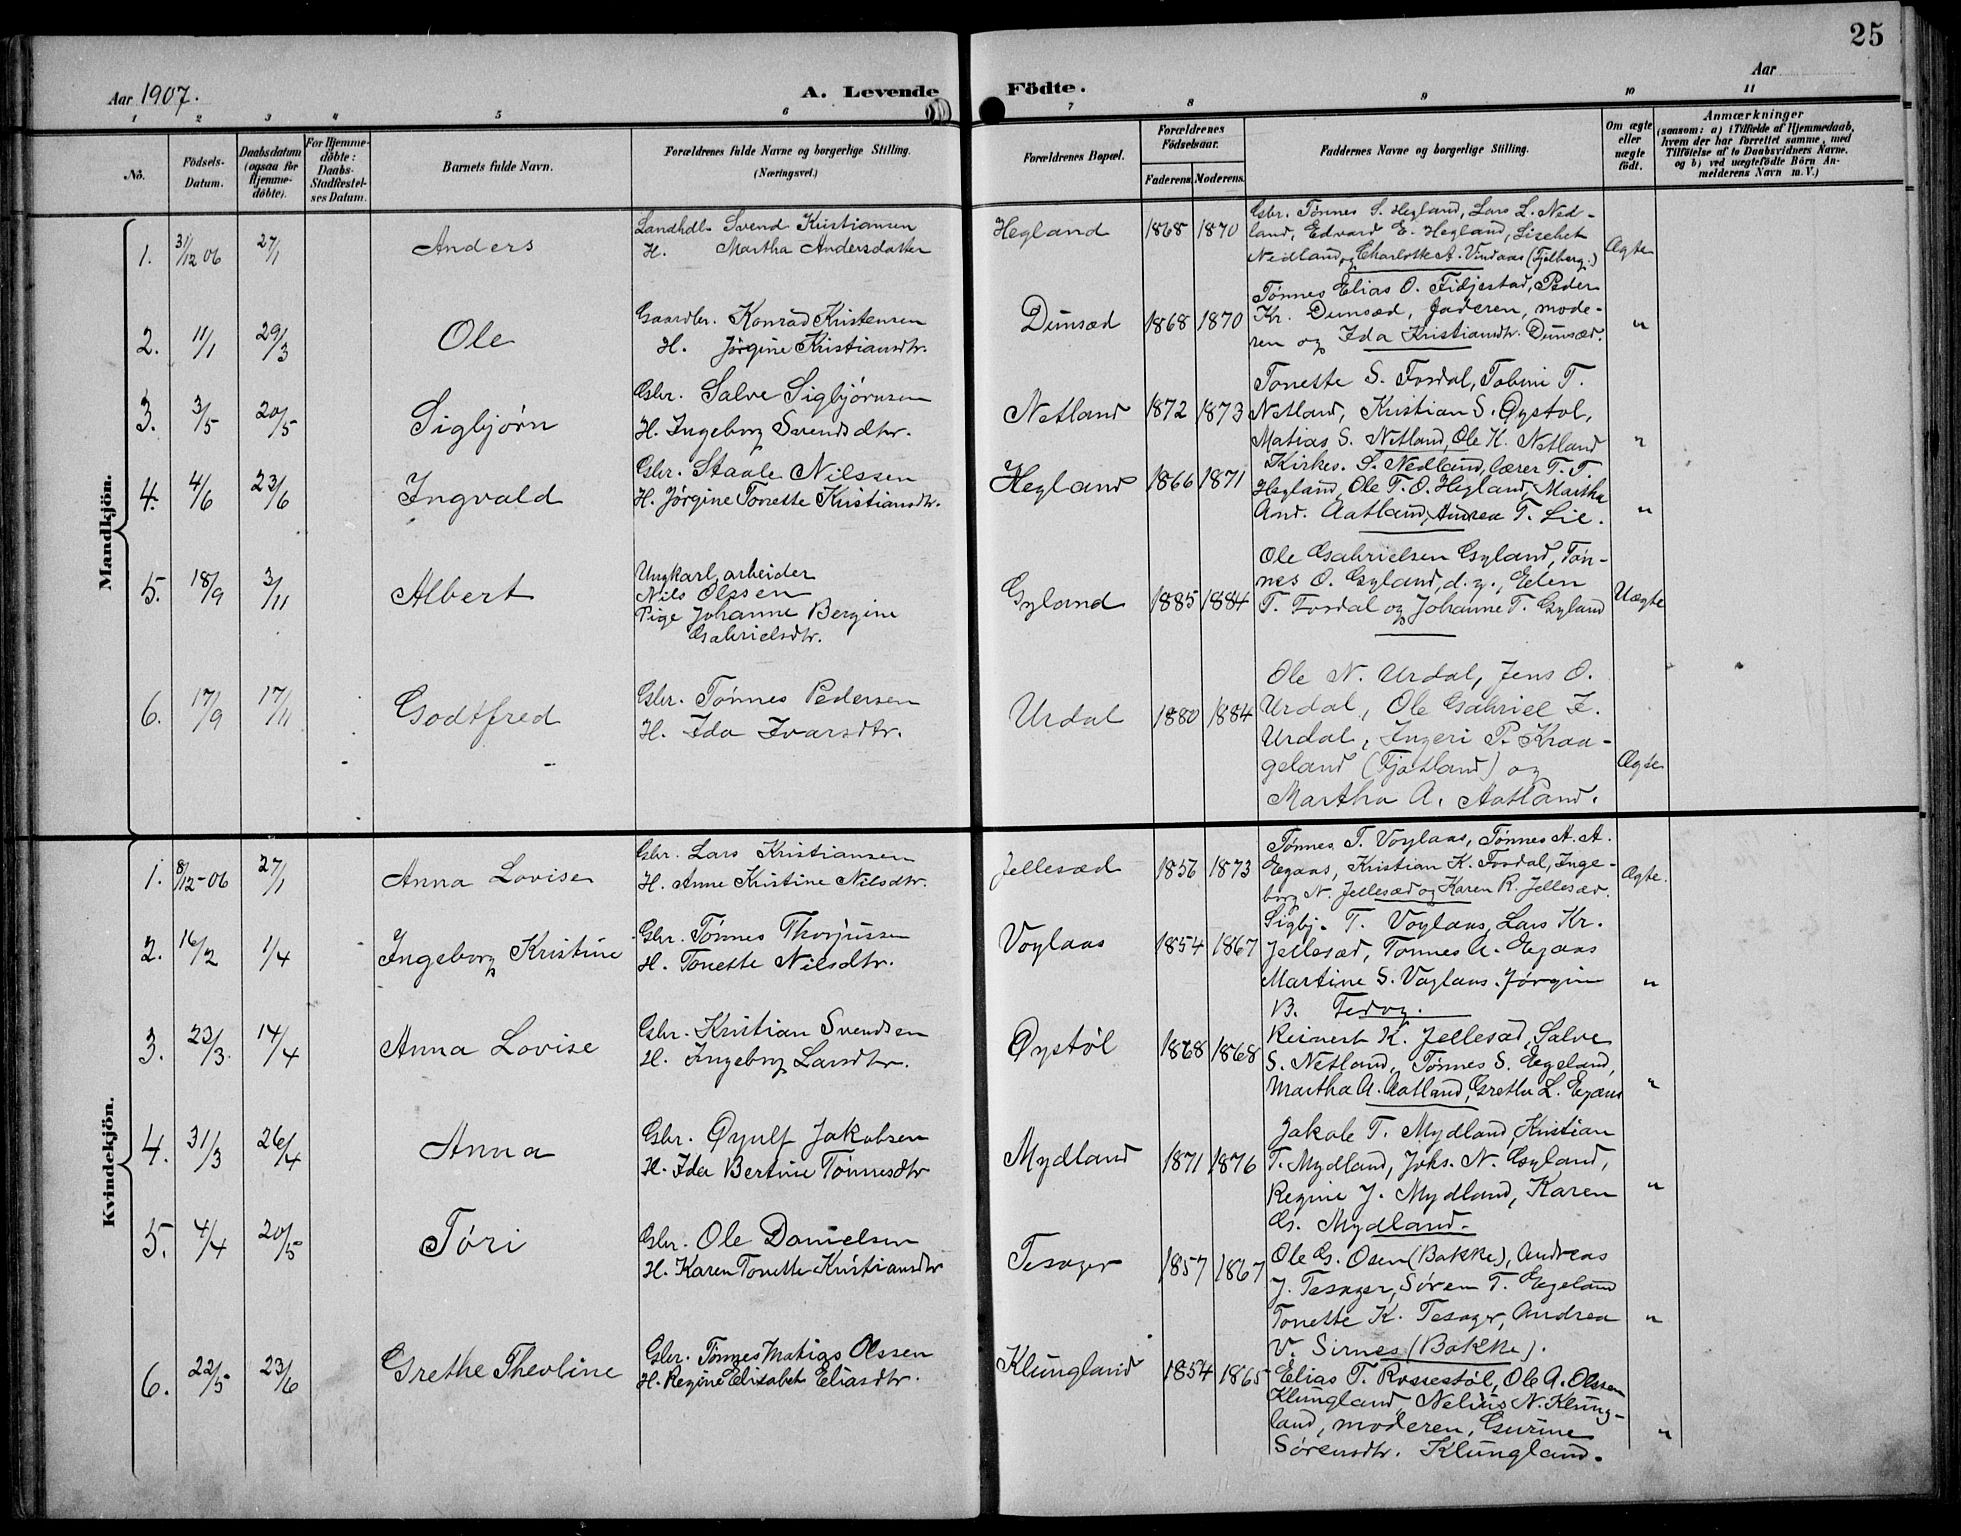 25
Aar 1907.
A. Levende Födte.
Aar
1 2 3 4 5 6 7 8 9 10 11
No.
Födsels-
Datum.
Daabsdatum
(ogsaa för
Hjemme-
döbte).
For Hjemme-
döbte:
Daabs-
Stadfæstel-
ses Datum.
Barnets fulde Navn.
Forældrenes fulde Navne og borgerlige Stilling.
(Næringsvei.)
Forældrenes Bopæl.
Forældrenes
Födselsaar.
Faderens. Moderens.
Faddernes Navne og borgerlige Stilling.
Om ægte
eller
uægte
födt.
Anmærkninger
(saasom: a) i Tilfælde af Hjemmedaab,
hvem der har forrettet samme, med
Tilföielse af to Daabsvidners Navne,
og b) ved uægtefödte Börn An-
melderens Navn m. V.)
Mandkjön.
1. 31/12 06 27/1 Anders
Landhdl. Svend Kristiansen
H. Martha Andersdatter
Hegland 1868 1870
Gbr. Tønnes S. Hegland, Lars L. Ned-
land, Edvard E. Hegland, Lisebet
Nedland, og Charlotte A. Vindaas (Fjelberg.)
Ægte
2. 11/1 29/3 Ole
Gaardbr. Konrad Kristensen
H. Jørgine Kristiansdtr.
Dunsæd 1868 1870
Tønnes Elias O. Fidjestad, Peder
Kr. Dunsæd, faderen, mode-
ren og Ida Kristiansdtr. Dunsæd.
"
3. 3/5 20/5 Sigbjørn
Gbr. Salve Sigbjørnsen
H. Ingeborg Svendsdtr.
Netland 1872 1873
Tonette S. Fosdal, Tobine T.
Netland, Kristian S. Øystøl,
Matias S. Netland, Ole K. Netland
"
4. 4/6 23/6 Ingvald
Gbr. Staale Nilssen
H. Jørgine Tonette Kristiansdtr.
Hegland 1866 1871
Kirkes. S. Nedland, lærer T. T.
Hegland, Ole T. O. Hegland, Martha
And. Aatland, Andrea T. Lie.
"
5. 18/9 3/11 Albert
Ungkarl, arbeider
Nils Olssen
Pige Johanne Bergine
Gabrielsdtr.
Gyland 1885 1884
Ole Gabrielsen Gyland, Tøn-
nes O. Gyland, d. y., Elen
T. Fosdal og Johanne T. Gyland
Uægte
6. 17/9 17/11 Godtfred
Gbr. Tønnes Pedersen
H. Ida Ivarsdtr.
Urdal 1880 1884
Ole N. Urdal, Jens O.
Urdal, Ole Gabriel I.
Urdal, Ingeri P. Kraa-
geland (Fjotland) og
Martha A. Aatland.
Ægte
Kvindekjön.
1. 8/12-06 27/1 Anna Lovise
Gbr. Lars Kristiansen
H. Anne Kristine Nilsdtr.
Jellesæd 1856 1873
Tønnes T. Voylaas, Tønnes A. A.
Egaas, Kristian K. Fosdal, Inge-
borg N. Jellesæd og Karen R. Jellesæd.
Ægte.
2. 16/2 1/4 Ingeborg Kristine
Gbr. Tønnes Thorjussen
H. Tonette Nilsdtr.
Voylaas 1854 1867
Sigbj. T. Voylaas, Lars Kr.
Jellesæd, Tønnes A. Egaas
Martine S. Voylaas. Jørgine
B.
"
3. 23/3. 14/4 Anna Lovise
Gbr. Kristian Svendsen
H. Ingeborg Larsdtr.
Øystøl 1868 1868
Reinert K. Jellesæd, Salve
S. Netland, Tønnes S. Egeland,
Martha A. Aatland, Grethe L. Egaas
"
4. 31/3 26/4 Anna
Gbr. Øyulf Jakobsen
H. Ida Bertine Tønnesdtr
Mydland 1871 1876
Jakob T. Mydland, Kristian
T. Mydland, Johs. N. Gyland,
Regine J. Mydland, Karen
G. Mydland.
"
5. 4/4 20/5 Tóri
Gbr. Ole Danielsen
H. Karen Tonette Kristiansdtr
Tesager 1857 1867
Ole G. Osen (Bakke), Andreas
J. Tesager, Søren T. Egeland
Tonette K. Tesager, Andrea
V. Sirnes (Bakke).
"
6. 22/5 23/6 Grethe Theoline
Gbr. Tønnes Matias Olssen
H. Regine Elisabet Eliasdtr.
Klungland 1854 1865
Elias T. Rossestøl, Ole A. Olssen
Klungland, Nelius N. Klung-
land, moderen, Gurine
Sørensdtr. Klungland.
"